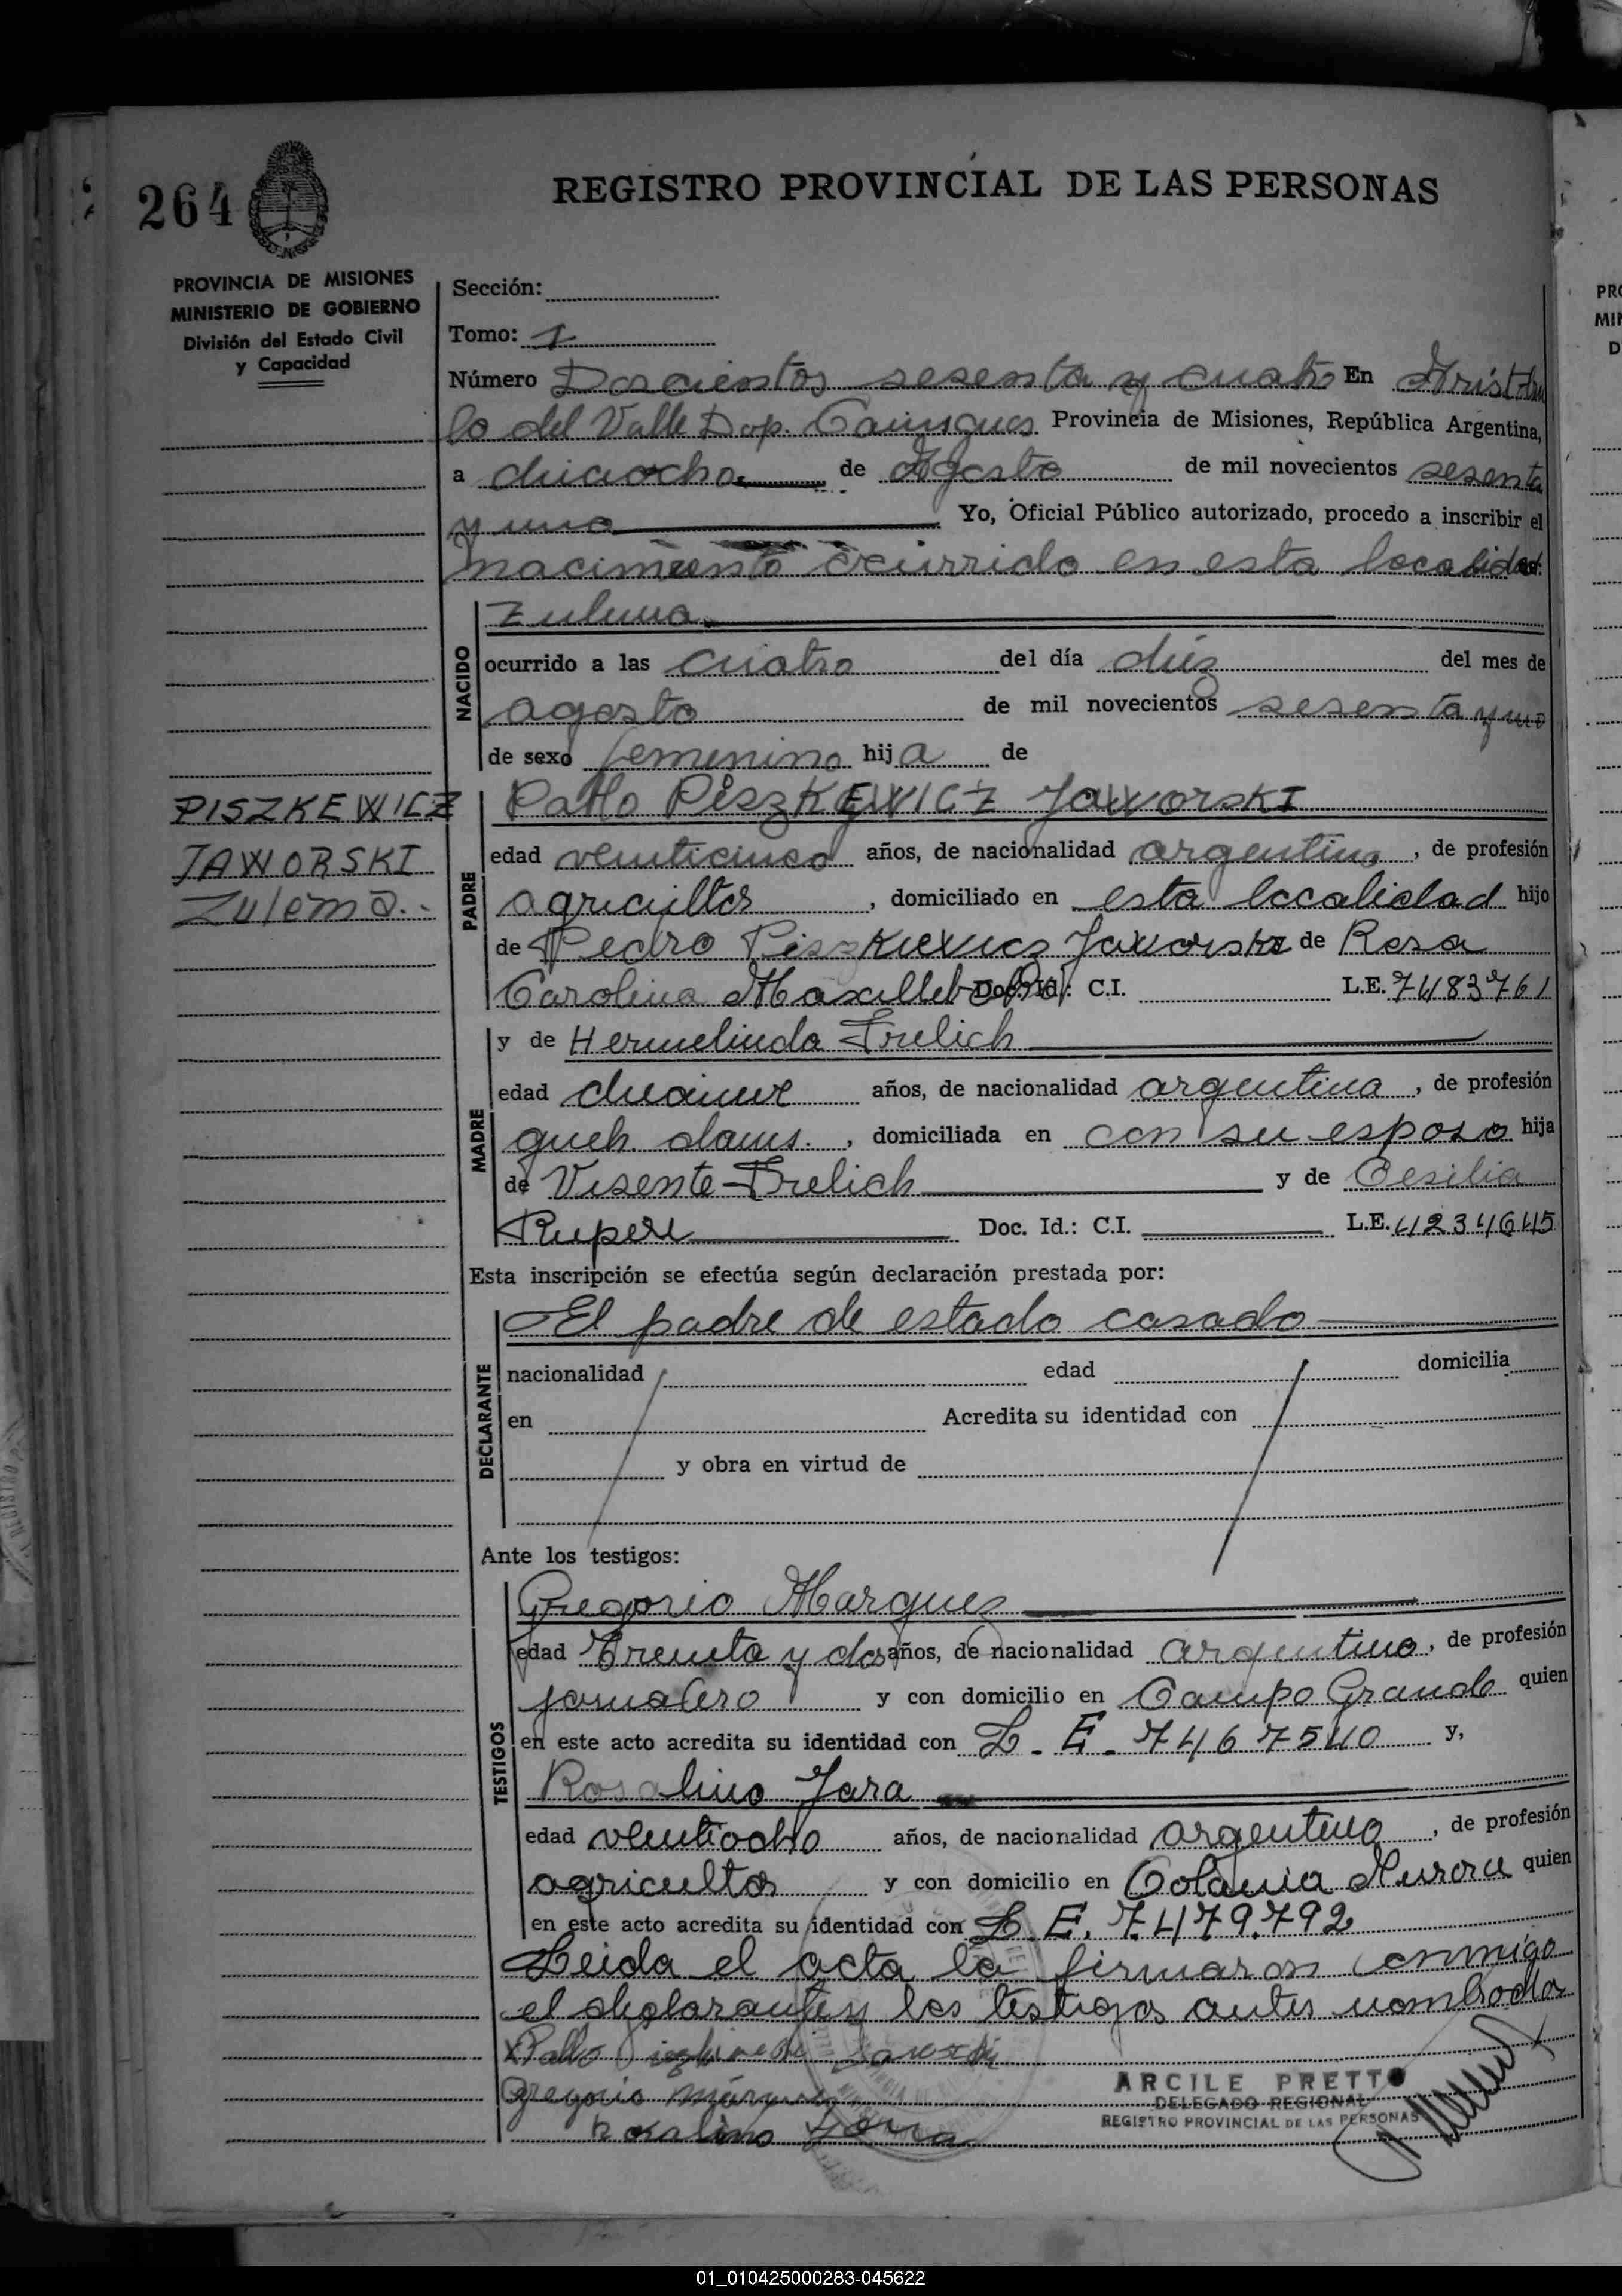 264
REGISTRO PROVINCIAL DE LAS PERSONAS
PROVINCIA DE MISIONES
MINISTERIO DE GOBIERNO
División del Estado Civil
y Capacidad
Sección:
Tomo: 1
Número Doscientos sesenta y cuatro En Aristóbu
lo del Valle Dep. Cainguas Provincia de Misiones, República Argentina,
a dieciocho de Agosto de mil novecientos sesenta
y uno Yo, Oficial Público autorizado, procedo a inscribir el
nacimiento ocurrido en esta localidad:
NACIDO
Zulema
ocurrido a las cuatro del día diez del mes de
agosto de mil novecientos sesenta y uno
de sexo femenino hija de
PISZKEWICZ
JAWORSKI
Zulema.
PADRE
Pablo PiszKEWICZ JaworskI
edad veinticinco años, de nacionalidad argentina, de profesión
agricultor, domiciliado en esta localidad hijo
de Pedro Piszkiewicz Jaworski de Rosa
Carolina Doc. Id.: C.I. L.E. 7483761
MADRE
y de Hermelinda Frelich
edad años, de nacionalidad argentina, de profesión
queh. doms., domiciliada en con su esposo hija
de Visente Frelich y de Cesilia
Ruperi Doc. Id.: C.I. L.E. 4234645
Esta inscripción se efectúa según declaración prestada por:
DECLARANTE
El padre de estado casado
nacionalidad edad domicilia
en Acredita su identidad con
y obra en virtud de
Ante los testigos:
TESTIGOS
Gregorio Marquez
edad treinta y dos años, de nacionalidad argentino, de profesión
jornalero y con domicilio en Campo Grande quien
en este acto acredita su identidad con L. E. 7467540 y,
Rosalino Jara
edad veintiocho años, de nacionalidad argentino, de profesión
agricultor y con domicilio en Colonia Aurora quien
en este acto acredita su identidad con L. E. 7.479.792
Leida el acta la firmaron conmigo
el declarante y los testigos antes nombrados
Pablo
Gregorio márquez
Rosalino Jara
ARCILE PRETTO
DELEGADO REGIONAL
REGISTRO PROVINCIAL DE LAS PERSONAS
01_010425000283-045622